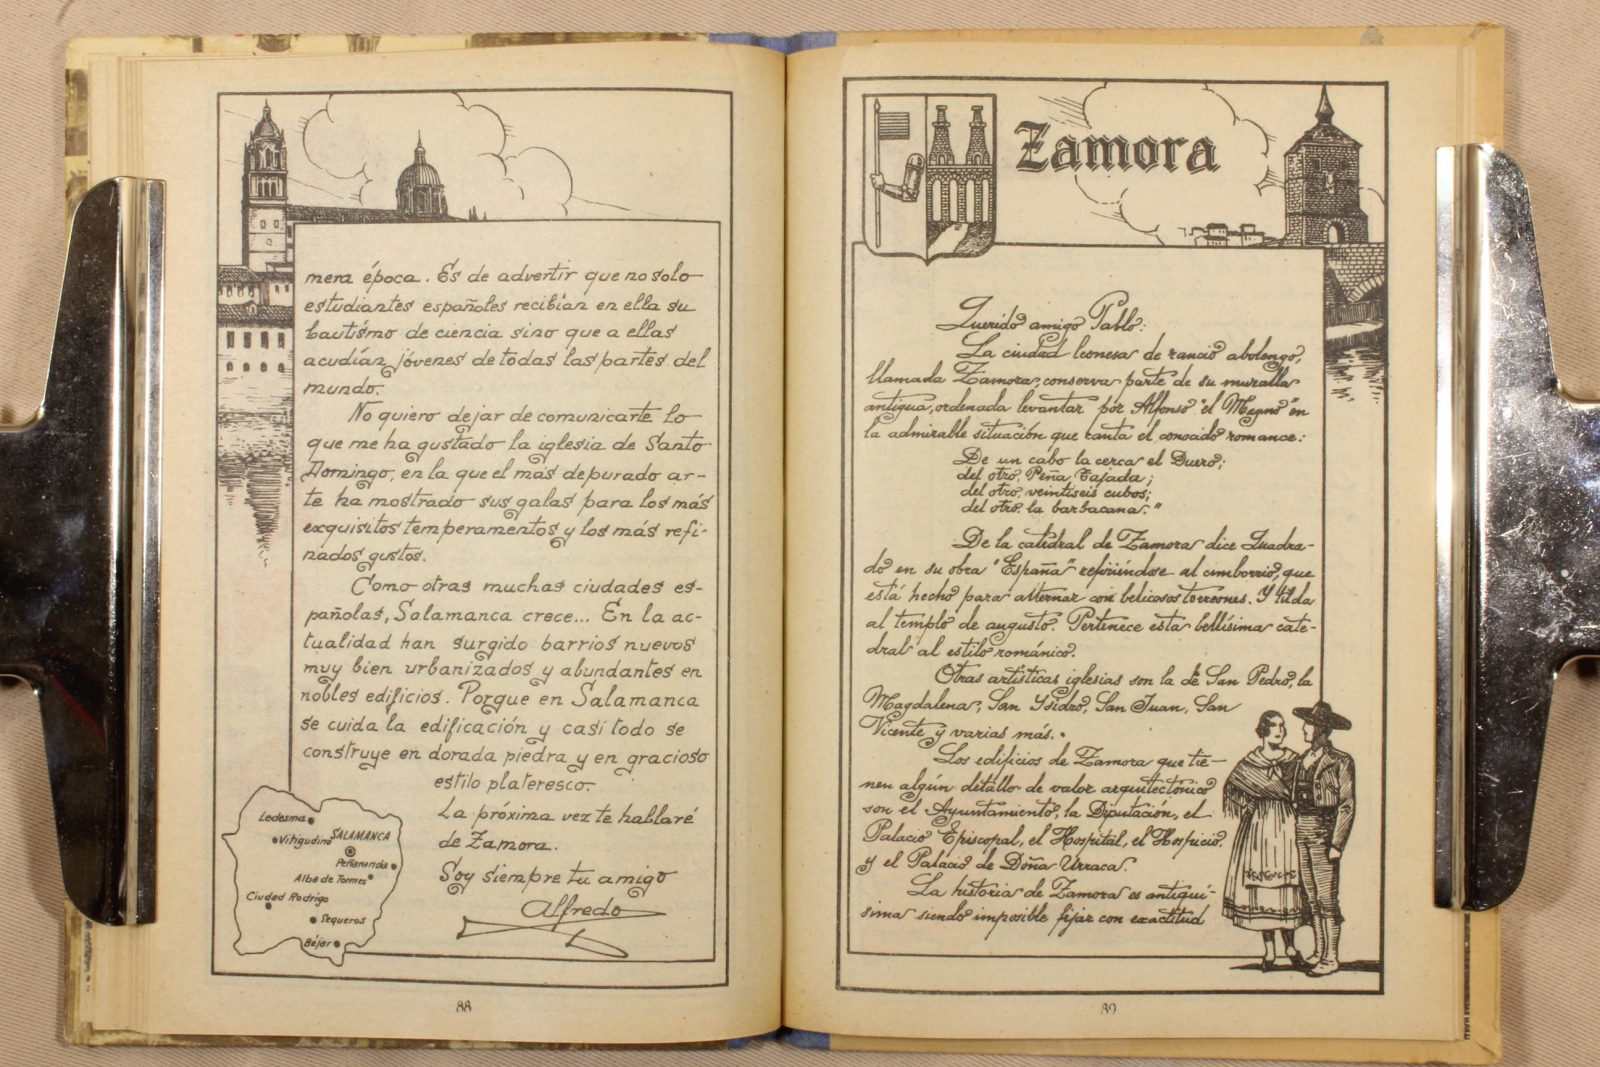 mera época. Es de advertir que no solo
estudiantes españoles recibían en ella su
bautismo de ciencia sino que a ellas
acudían jóvenes de todas las partes del
mundo.
No quiero dejar de comunicarte lo
que me ha gustado la iglesia de Santo
Domingo, en la que el más depurado ar-
te ha mostrado sus galas para los más
exquisitos temperamentos y los más refi-
nados gustos.
Como otras muchas ciudades es-
pañolas, Salamanca crece... En la ac-
tualidad han surgido barrios nuevos
muy bien urbanizados y abundantes en
nobles edificios. Porque en Salamanca
se cuida la edificación y casi todo se
construye en dorada piedra y en gracioso
estilo plateresco.
La próxima vez te hablaré
de Zamora.
Soy siempre tu amigo
Alfredo
Ledesma
Vitigudino
SALAMANCA
Peñaranda
Alba de Tormes
Ciudad Rodrigo
Sequeros
Béjar
88
Zamora
Querido amigo Pablo:
La ciudad leonesa de rancio abolengo,
llamada Zamora, conserva parte de su muralla
antigua, ordenada levantar por Alfonso "el Magno" en
la admirable situación que canta el conocido romance:
De un cabo la cerca el Duero;
del otro, Peña Tajada;
del otro, veintiseis cubos;
del otro, la barbacana."
De la catedral de Zamora dice Quadra-
do en su obra "España" refiriéndose al cimborrio, que
está hecho para alternar con belicosos torreones. Y tilda
al templo de augusto. Pertenece esta bellísima cate-
dral al estilo románico.
Otras artísticas iglesias son la de San Pedro, la
Magdalena, San Ysidro, San Juan, San
Vicente y varias más.
Los edificios de Zamora que tie-
nen algún detalle de valor arquitectónico
son el Ayuntamiento, la Diputación, el
Palacio Episcopal, el Hospital, el Hospicio,
y el Palacio de Doña Urraca.
La historia de Zamora es antiquí-
sima siendo imposible fijar con exactitud
89